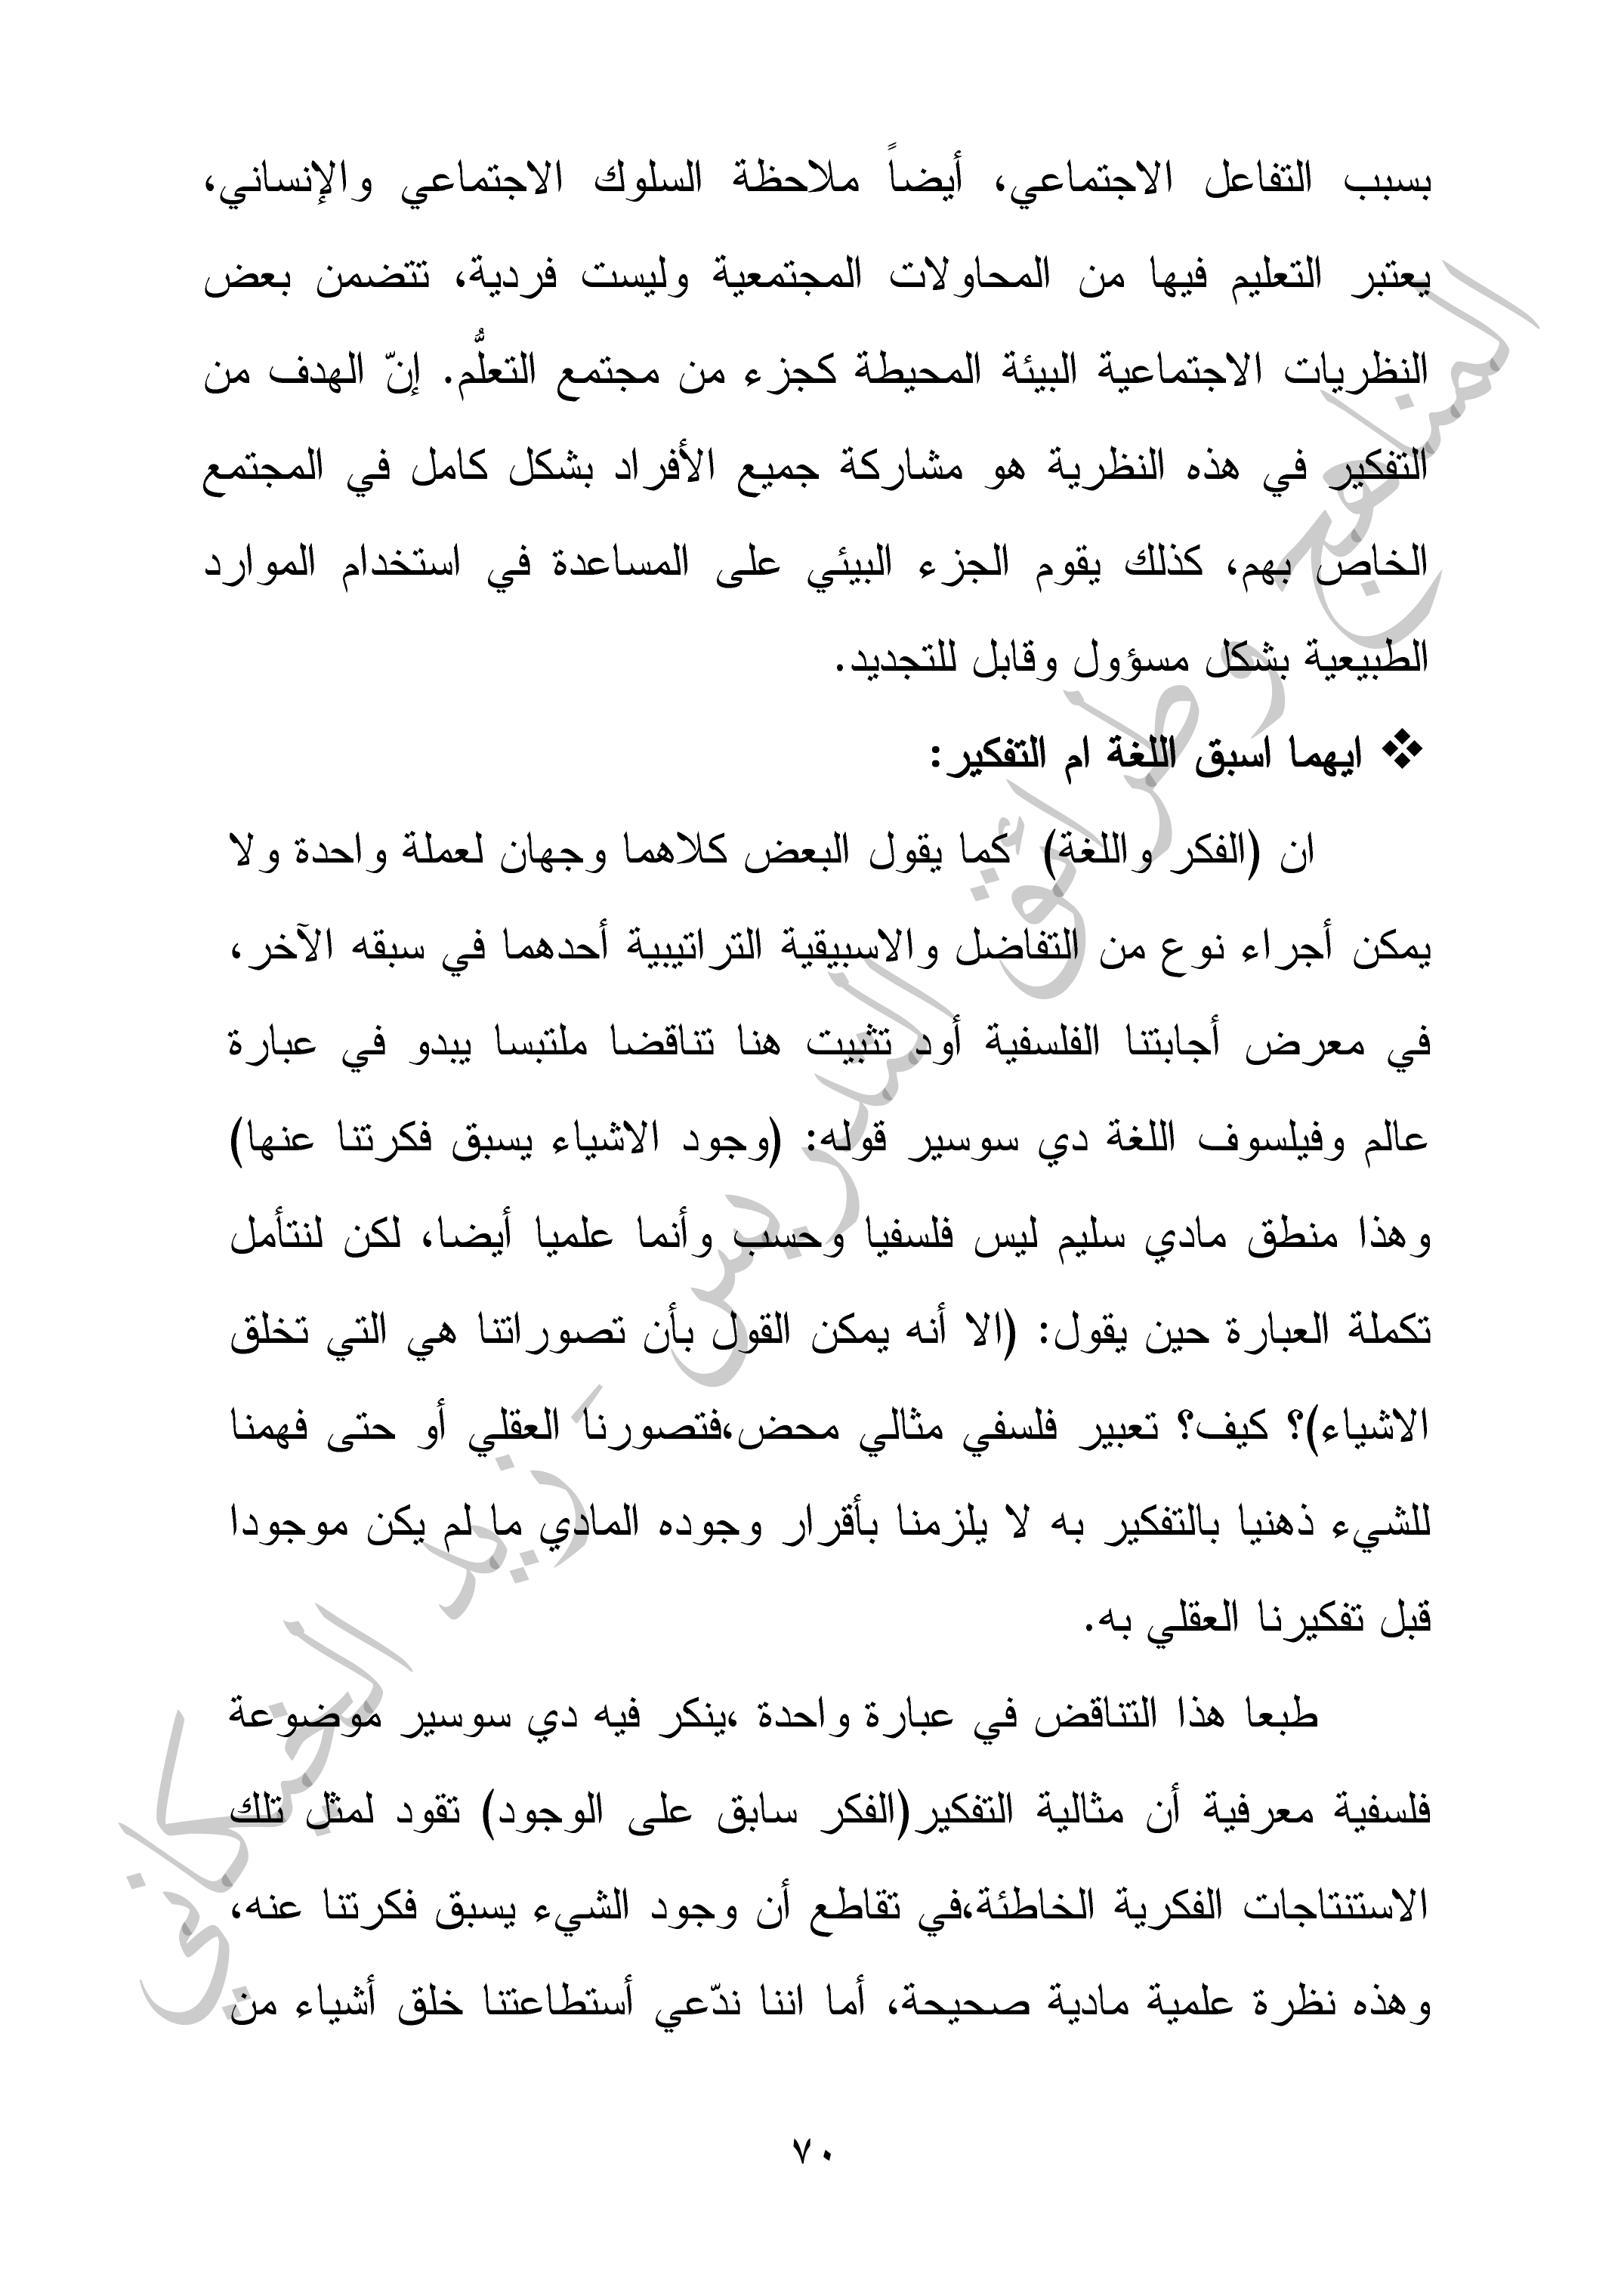 بسبب التفاعل الاجتماعي، أيضاً ملاحظة السلوك الاجتماعي والإنساني،
يعتبر التعليم فيها من المحاولات المجتمعية وليست فردية، تتضمن بعض
النظريات الاجتماعية البيئة المحيطة كجزء من مجتمع التعلُّم. إنّ الهدف من
التفكير في هذه النظرية هو مشاركة جميع الأفراد بشكل كامل في المجتمع
الخاص بهم، كذلك يقوم الجزء البيئي على المساعدة في استخدام الموارد
الطبيعية بشكل مسؤول وقابل للتجديد.
❖ ايهما اسبق اللغة ام التفكير:
ان (الفكر واللغة) كما يقول البعض كلاهما وجهان لعملة واحدة ولا
يمكن أجراء نوع من التفاضل والاسبيقية التراتيبية أحدهما في سبقه الآخر،
في معرض أجابتنا الفلسفية أود تثبيت هنا تناقضا ملتبسا يبدو في عبارة
عالم وفيلسوف اللغة دي سوسير قوله: (وجود الاشياء يسبق فكرتنا عنها)
وهذا منطق مادي سليم ليس فلسفيا وحسب وأنما علميا أيضا، لكن لنتأمل
تكملة العبارة حين يقول: (الا أنه يمكن القول بأن تصوراتنا هي التي تخلق
الاشياء)؟ كيف؟ تعبير فلسفي مثالي محض،فتصورنا العقلي أو حتى فهمنا
للشيء ذهنيا بالتفكير به لا يلزمنا بأقرار وجوده المادي ما لم يكن موجودا
قبل تفكيرنا العقلي به.
طبعا هذا التناقض في عبارة واحدة ،ينكر فيه دي سوسير موضوعة
فلسفية معرفية أن مثالية التفكير(الفكر سابق على الوجود) تقود لمثل تلك
الاستنتاجات الفكرية الخاطئة،في تقاطع أن وجود الشيء يسبق فكرتنا عنه،
وهذه نظرة علمية مادية صحيحة، أما اننا ندّعي أستطاعتنا خلق أشياء من
٧٠
المناهج وطرائق التدريس - زيد الخيكاني